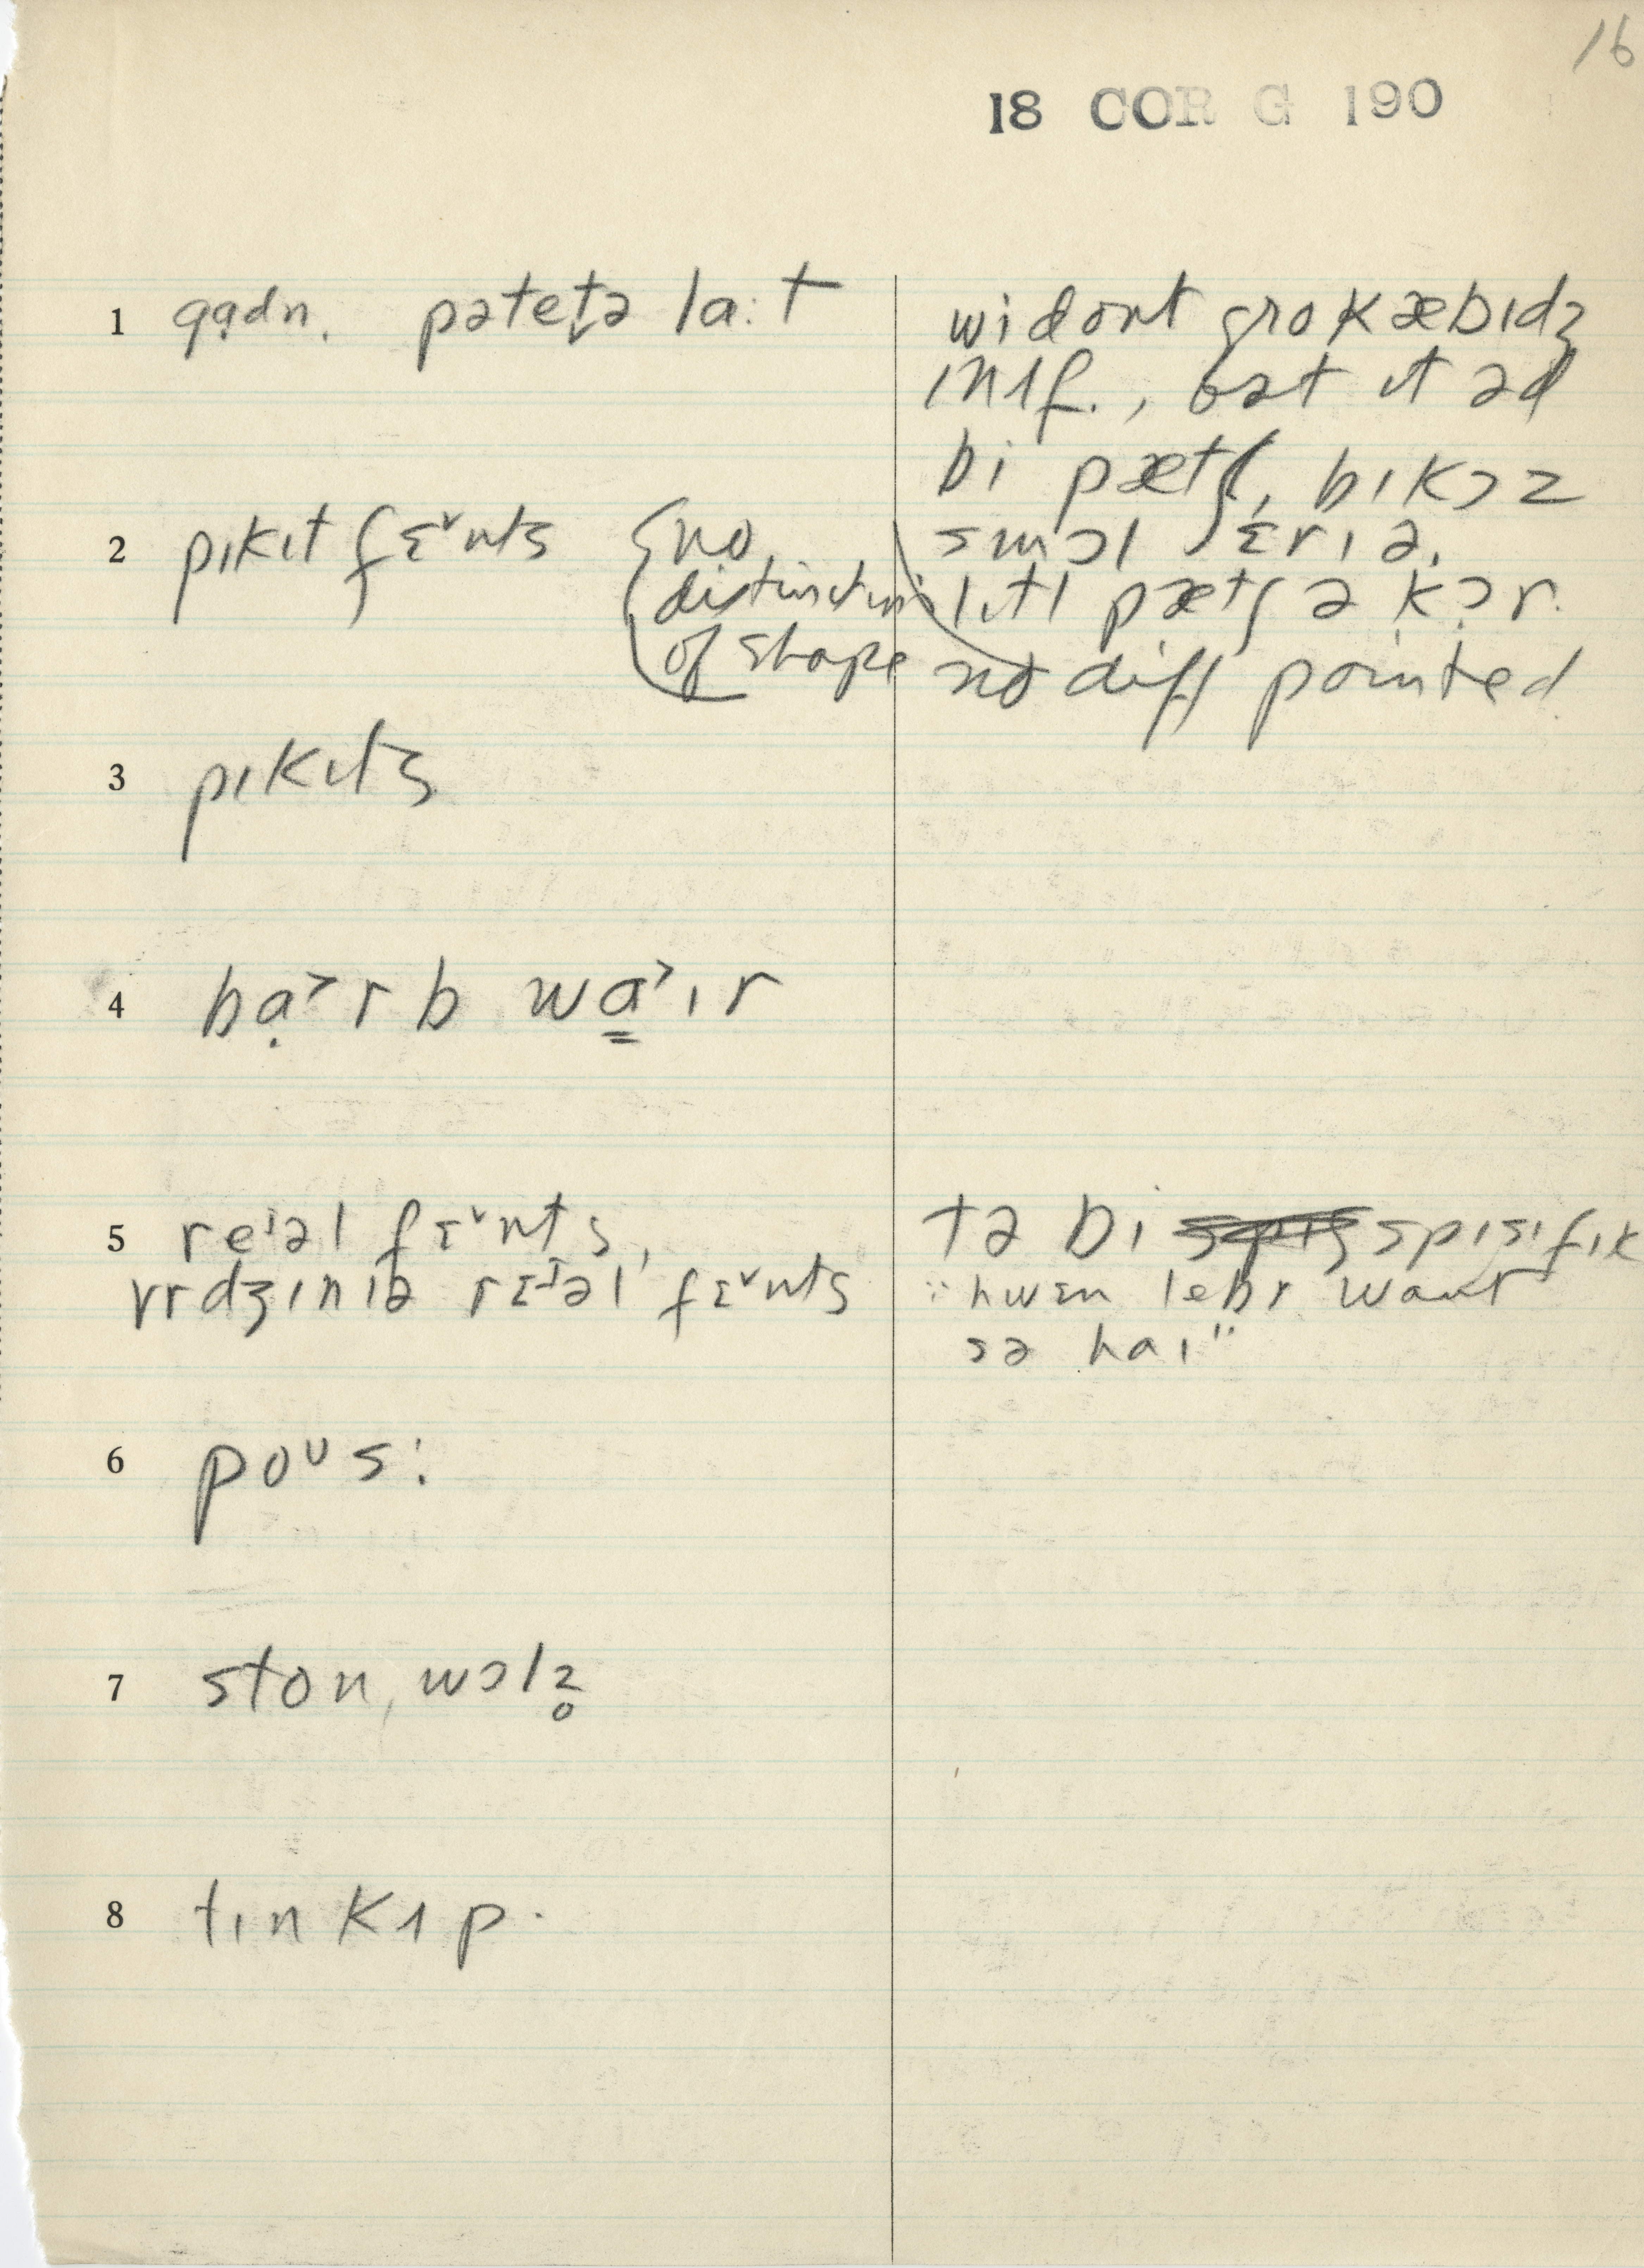 16
18 COR G 190
1 gạdn. pətet̬ə la:t
wi dont gro kæbɪdʒ
ɪnʌf., bət ɪt əd
bi pætʃ, bɪkɔz
smɔl ɛrɪə.
2 pɪkɪt fɛ˅nts {no
distinction
of shape
lɪtl pætʃ ə kɔ̣r.
no diff pointed
3 pɪkɪts
4 bạ˃rb wa̳˃ɪr
5 reɪəl fɛ˅nts,
vrdʒɪnɪə rɛɪəl fɛ˅nts
tə bi spɪsɪfɪk
"hwɛn lebr want
sə haɪ"
6 poᴜs:
7 ston, wɔlz̥
8 tɪn kʌp.